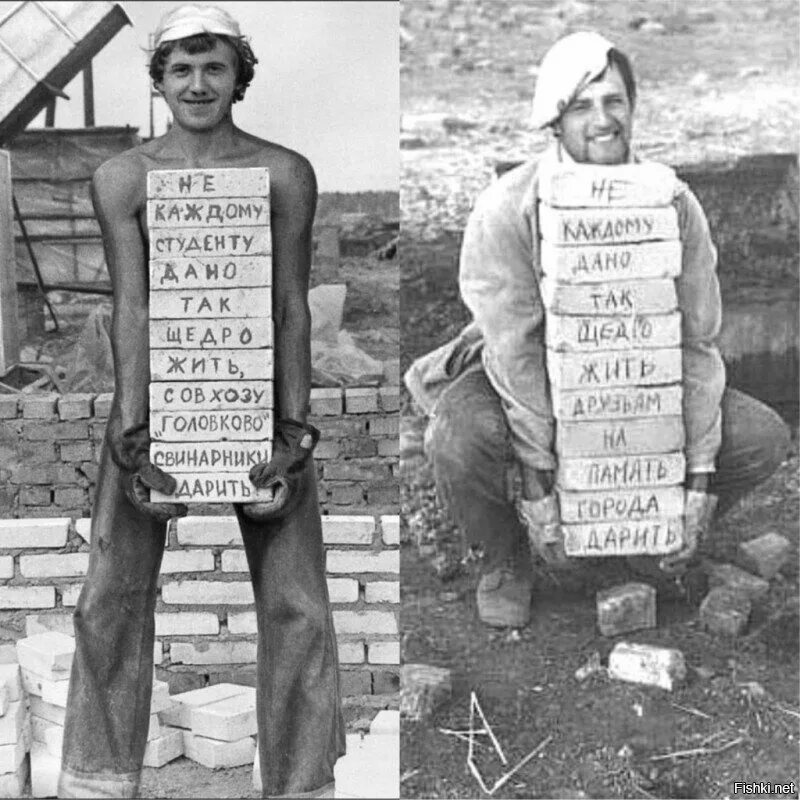 НЕ
КАЖДОМУ
СТУДЕНТУ
ДАНО
ТАК
ЩЕДРО
ЖИТЬ,
СОВХОЗУ
"ГОЛОВКОВО"
СВИНАРНИКИ
ДАРИТЬ
НЕ
КАЖДОМУ
ДАНО
ТАК
ЩЕДРО
ЖИТЬ
ДРУЗЬЯМ
НА
ПАМЯТЬ
ГОРОДА
ДАРИТЬ
Fishki.net